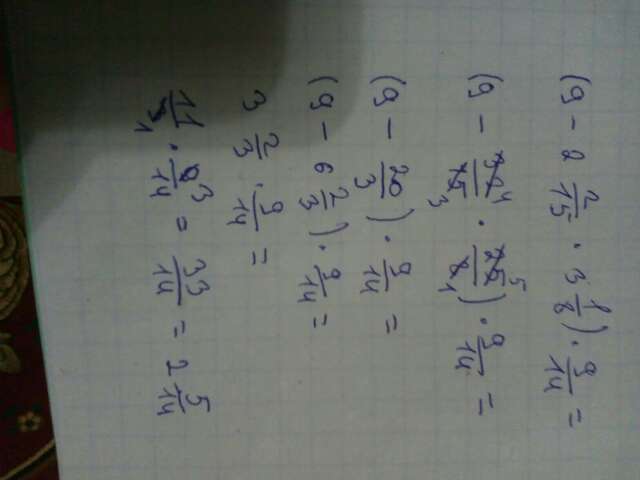 (9 - 2 2/15 · 3 1/8) · 9/14 =
(9 - 32 4/15 3 · 25 5/8 1) · 9/14 =
(9 - 20/3) · 9/14 =
(9 - 6 2/3) · 9/14 =
3 2/3 · 9/14 =
11/3 1 · 9 3/14 = 33/14 = 2 5/14